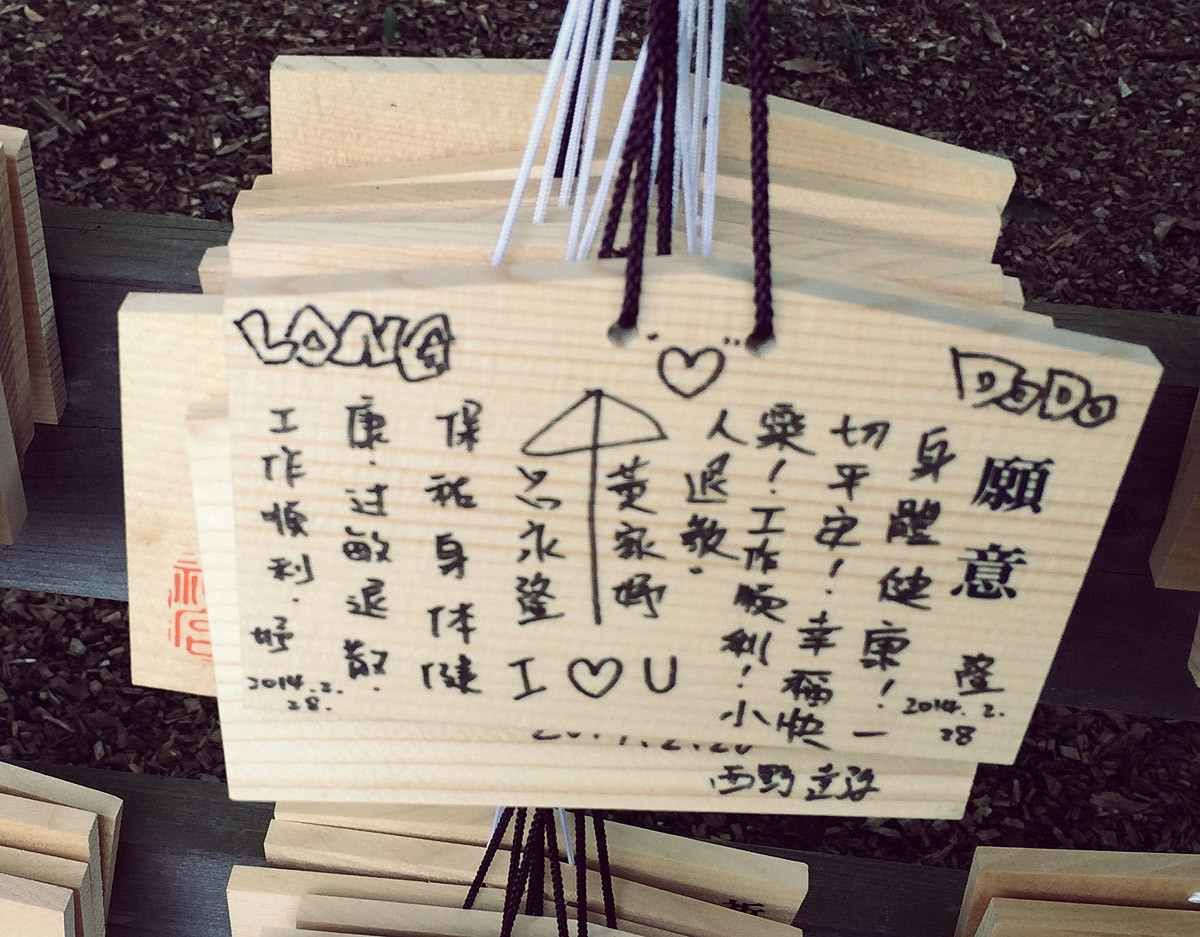 DODO
願意
隆
2014.2.28
身體健康!一
切平安!幸福快
樂!工作順利!小
人退散.
♡
黃家妤
永隆
I ♡ U
LONG
保祐身体健
康.过敏退散.
工作順利.妤
2014.2.28.
西野